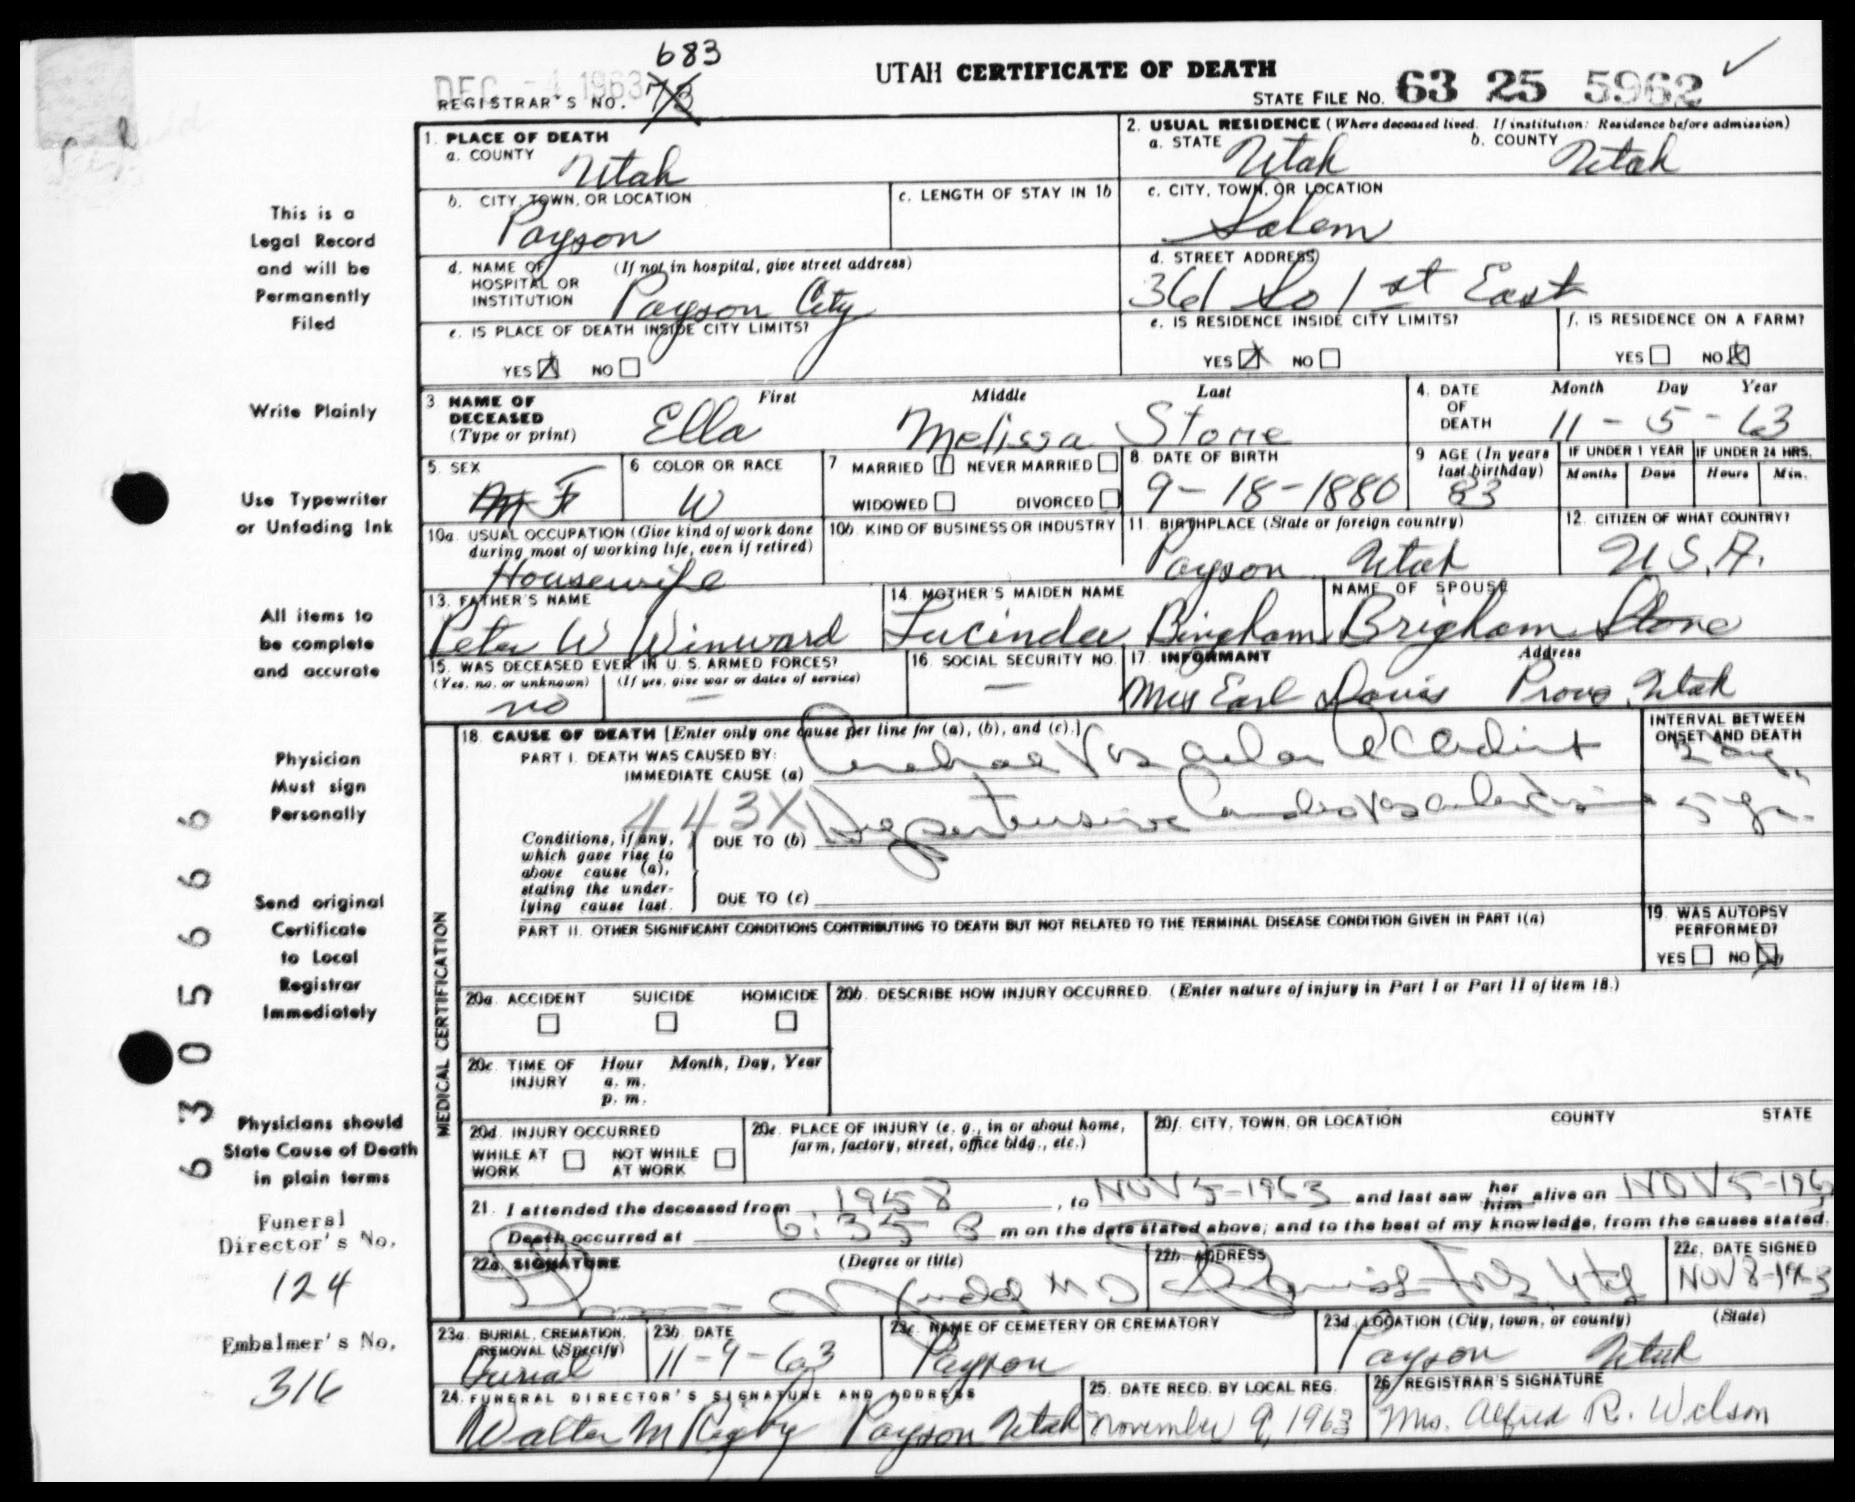 683
DEC - 4 1963
UTAH CERTIFICATE OF DEATH
REGISTRAR'S NO. 73
STATE FILE NO. 63 25 5962 ✓
1. PLACE OF DEATH
a. COUNTY Utah
2. USUAL RESIDENCE (Where deceased lived. If institution: Residence before admission)
a. STATE Utah b. COUNTY Utah
b. CITY, TOWN, OR LOCATION Payson
c. LENGTH OF STAY IN 1b
c. CITY, TOWN, OR LOCATION Salem
d. NAME OF HOSPITAL OR INSTITUTION (If not in hospital, give street address) Payson City
d. STREET ADDRESS 361 So 1st East
e. IS PLACE OF DEATH INSIDE CITY LIMITS?
YES ☒ NO ☐
e. IS RESIDENCE INSIDE CITY LIMITS?
YES ☒ NO ☐
f. IS RESIDENCE ON A FARM?
YES ☐ NO ☒
3 NAME OF DECEASED (Type or print)
First Middle Last
Ella Melissa Stone
4. DATE OF DEATH
Month Day Year
11 - 5 - 63
5. SEX M F
6 COLOR OR RACE W
7 MARRIED ☑ NEVER MARRIED ☐
WIDOWED ☐ DIVORCED ☐
8. DATE OF BIRTH 9-18-1880
9 AGE (In years last birthday) 83
IF UNDER 1 YEAR
Months Days
IF UNDER 24 HRS.
Hours Min.
10a. USUAL OCCUPATION (Give kind of work done during most of working life, even if retired)
Housewife
10b. KIND OF BUSINESS OR INDUSTRY
11. BIRTHPLACE (State or foreign country)
Payson Utah
12. CITIZEN OF WHAT COUNTRY?
U.S.A.
13. FATHER'S NAME
Peter W Winward
14. MOTHER'S MAIDEN NAME
Lucinda Bingham
NAME OF SPOUSE
Brigham Stone
15. WAS DECEASED EVER IN U. S. ARMED FORCES?
(Yes, no, or unknown) (If yes, give war or dates of service)
no —
16. SOCIAL SECURITY NO.
—
17. INFORMANT Address
Mrs Earl Davis Provo, Utah
18. CAUSE OF DEATH [Enter only one cause per line for (a), (b), and (c).]
INTERVAL BETWEEN ONSET AND DEATH
PART I. DEATH WAS CAUSED BY:
IMMEDIATE CAUSE (a) Cerebral Vascular Accident
2 days
443X
Conditions, if any, which gave rise to above cause (a), stating the underlying cause last.
DUE TO (b) Hypertensive Cardiovascular
5 yr.
DUE TO (c)
PART II. OTHER SIGNIFICANT CONDITIONS CONTRIBUTING TO DEATH BUT NOT RELATED TO THE TERMINAL DISEASE CONDITION GIVEN IN PART I(a)
19. WAS AUTOPSY PERFORMED?
YES ☐ NO ☒
MEDICAL CERTIFICATION
20a. ACCIDENT SUICIDE HOMICIDE
☐ ☐ ☐
20b. DESCRIBE HOW INJURY OCCURRED. (Enter nature of injury in Part I or Part II of item 18.)
20c. TIME OF INJURY Hour Month, Day, Year
a. m.
p. m.
20d. INJURY OCCURRED
WHILE AT WORK ☐ NOT WHILE AT WORK ☐
20e. PLACE OF INJURY (e. g., in or about home, farm, factory, street, office bldg., etc.)
20f. CITY, TOWN, OR LOCATION COUNTY STATE
21. I attended the deceased from 1958, to NOV 5-1963 and last saw her him alive on NOV 5-1963
Death occurred at 6:35 m on the date stated above; and to the best of my knowledge, from the causes stated.
22a. SIGNATURE (Degree or title)
M D
22b. ADDRESS
Spanish Fork, Utah
22c. DATE SIGNED
NOV 8-1963
23a. BURIAL, CREMATION, REMOVAL (Specify)
Burial
23b. DATE
11-9-63
23c. NAME OF CEMETERY OR CREMATORY
Payson
23d. LOCATION (City, town, or county) (State)
Payson Utah
24. FUNERAL DIRECTOR'S SIGNATURE AND ADDRESS
Walter M Rigby Payson Utah
25. DATE RECD. BY LOCAL REG.
November 9, 1963
26. REGISTRAR'S SIGNATURE
Mrs. Alfred R. Wilson
This is a
Legal Record
and will be
Permanently
Filed
Write Plainly
Use Typewriter
or Unfading Ink
All items to
be complete
and accurate
Physician
Must sign
Personally
Send original
Certificate
to Local
Registrar
Immediately
Physicians should
State Cause of Death
in plain terms
Funeral
Director's No.
124
Embalmer's No.
316
6305666